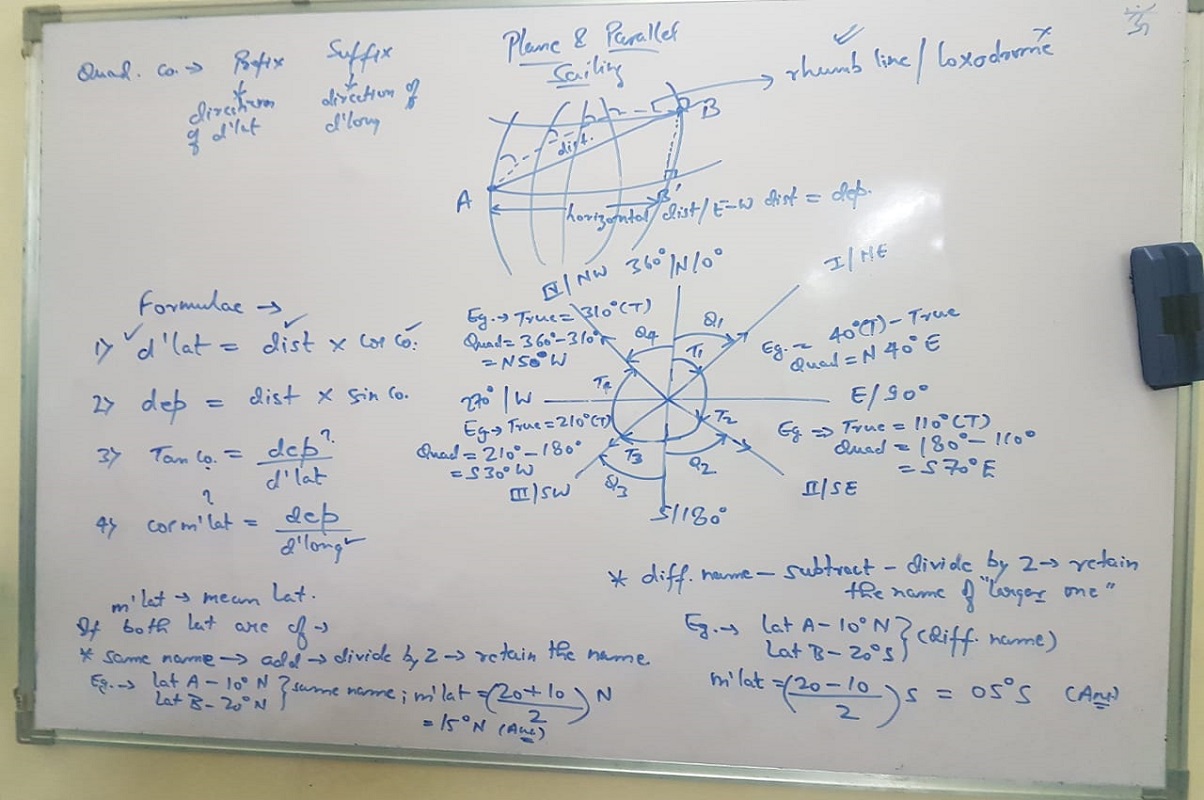 Plane & Parallel
Sailing
Quad. co. → Prefix Suffix
direction of d'lat
direction of d'long
rhumb line / Loxodrome
A
B
B'
dist.
horizontal dist / E-W dist = dep.
Formulae →
1) d'lat = dist × cos co.
2) dep = dist × sin co.
3) Tan co. = dep / d'lat
?
?
4) cos m'lat = dep / d'long
m'lat → mean Lat.
If both lat are of →
* same name → add → divide by 2 → retain the name
Eg. → Lat A - 10° N
Lat B - 20° N } same name ; m'lat = (20 + 10 / 2) N
= 15° N (Ans)
IV/NW 360°/N/0° I/NE
Eg. → True = 310° (T)
Quad = 360° - 310°
= N 50° W
Q4 Q1
Eg. = 40° (T) - True
Quad = N 40° E
T1
T4
270° / W
E / 90°
Eg → True = 210° (T)
Quad = 210° - 180°
= S 30° W
T2
T3
Q2
Q3
Eg ⇒ True = 110° (T)
Quad = 180° - 110°
= S 70° E
III/SW
II/SE
S/180°
* diff. name - subtract - divide by 2 → retain
the name of "larger one"
Eg. → Lat A - 10° N
Lat B - 20° S } (diff. name)
m'lat = (20 - 10 / 2) S = 05° S (Ans)